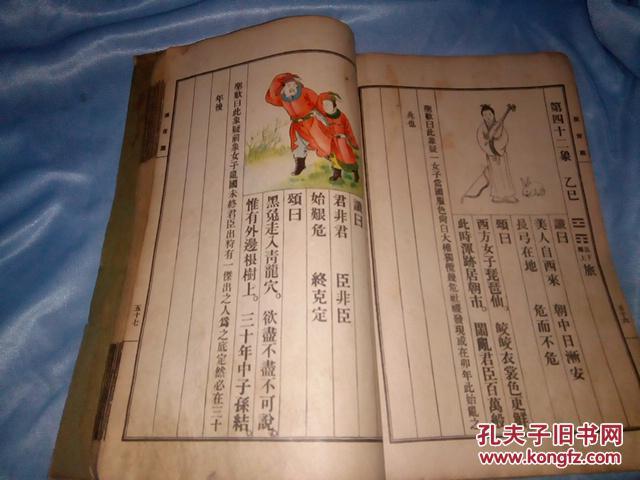 第四十二象 乙巳
旅
讖曰
美人自西來 朝中日漸安
長弓在地 危而不危
頌曰
西方女子琵琶仙。 皎皎衣裳色更鮮
此時渾跡居朝市。 鬧亂君臣百萬
聖歎曰此象疑一女子當國服色尚白大權獨攬幾危社稷發現或在卯年此始亂之
兆也
讖曰
君非君 臣非臣
始艱危 終克定
頌曰
黑兔走入青龍穴。 欲盡不盡不可說。
惟有外邊根樹上。 三十年中子孫結。
聖歎曰此象疑前象女子亂國未終君臣出狩有一傑出之人爲之底定然必在三十
年後
五十七
孔夫子旧书网
www.kongfz.com